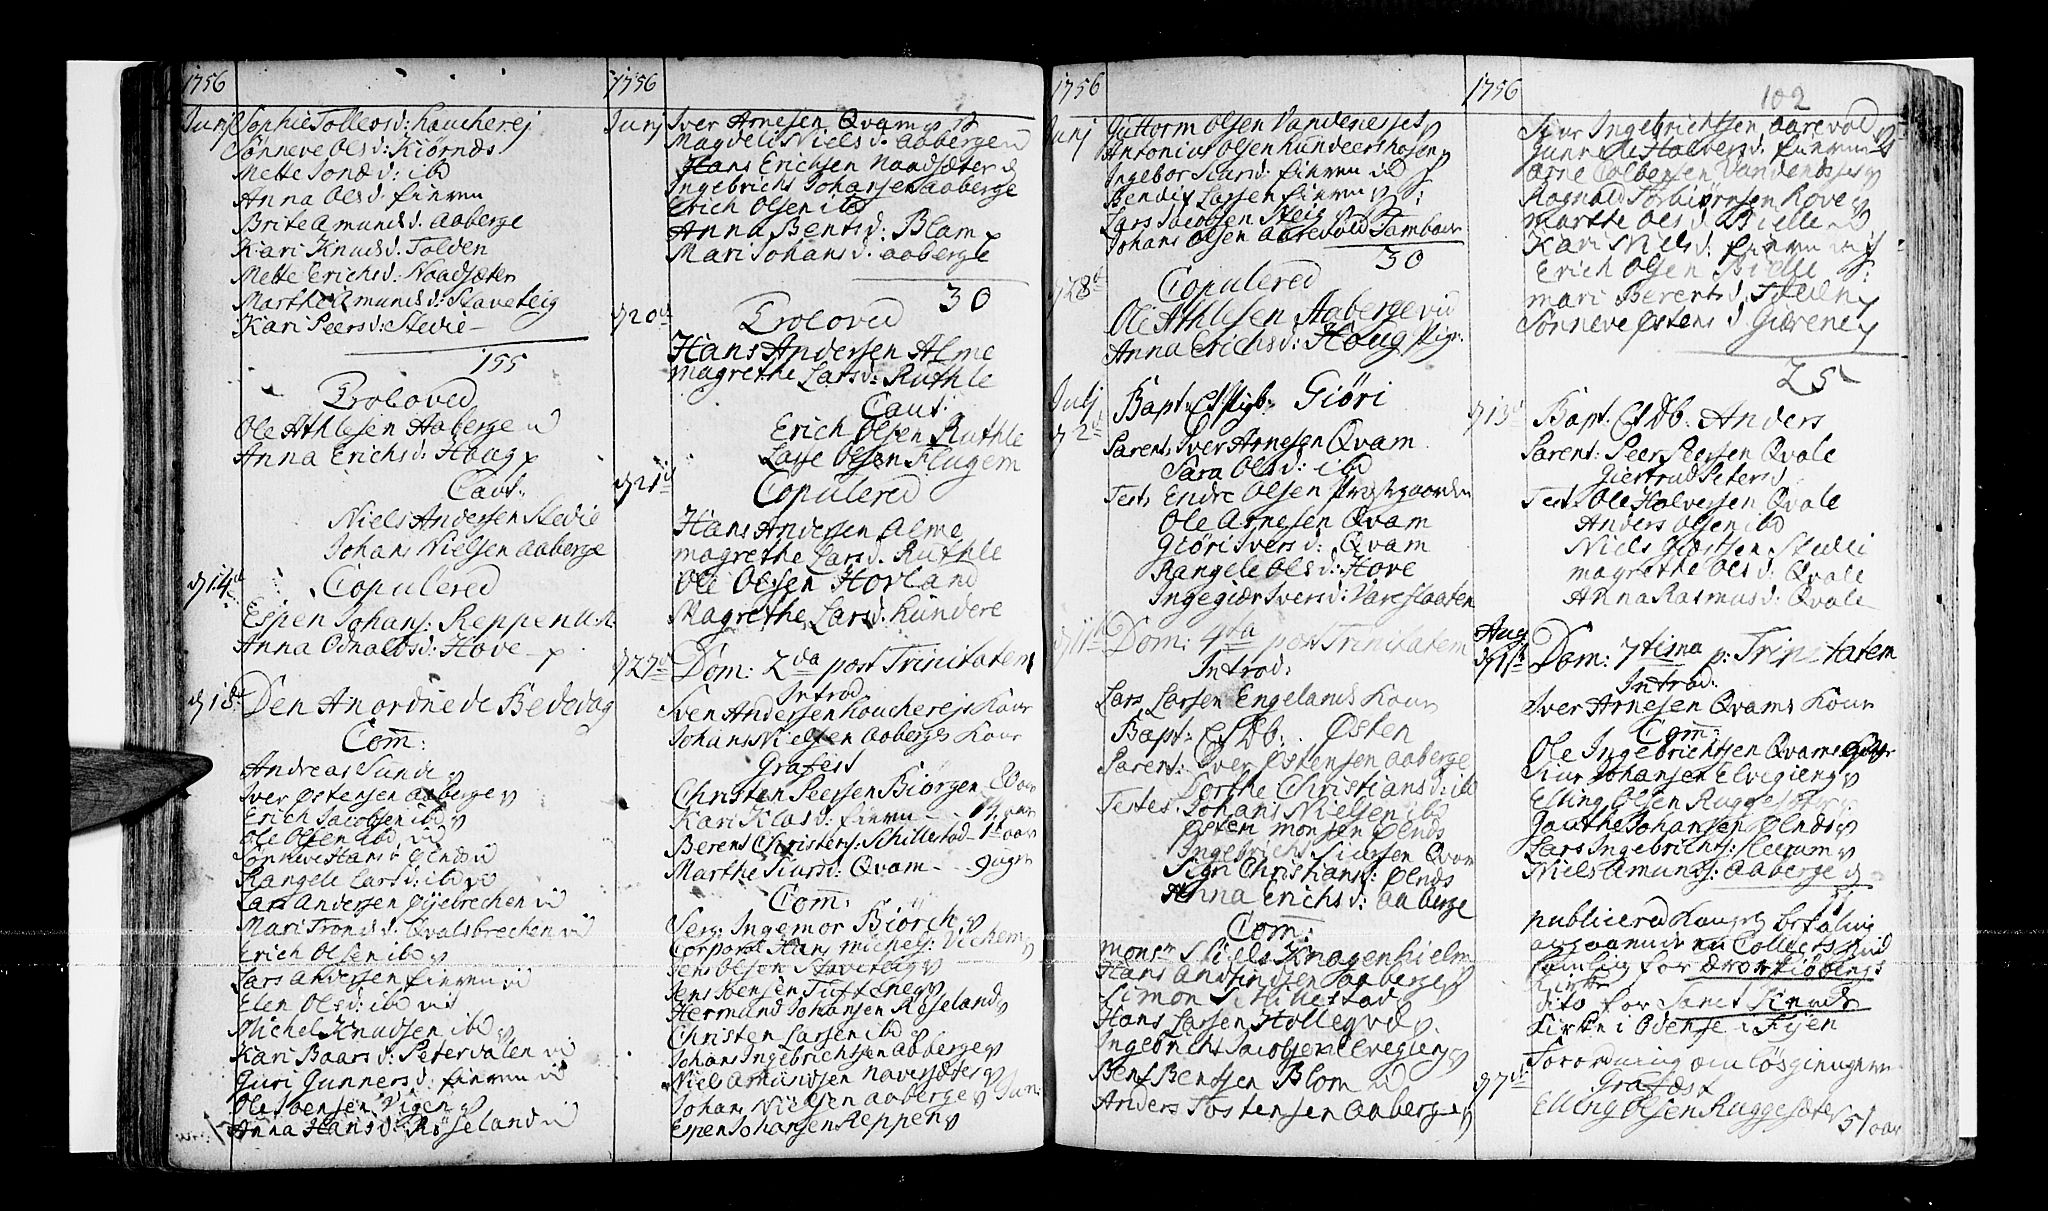 1756
Junj
Sophie Tollevsd: Loucherej
Sønneve Olsd: Kiørnæs
Mette Jonæd: ibd
Anna Olsd. Einven
Brite Amundsd. Aaberge
Kari Knudsd. Tolden
Mette Erichsd: Naadsæter
Marthe Amundsd: Staveteig
Kari Peersd: Stedie
155
Troloved
Ole Athlesen Aaberge
Anna Erichsd: Houg
Caut:
Niels Andersen Stedie
Johans Nielsen Aaberge
d 14de
Copulered
Espen Johans: Reppen
Anna Odnaldsd: Hove
d 18de
Den Anordnede Bededag
Com:
Andreas Sunde
Iver Østensen Aaberge
Erich Jacobsen ibd
Ole Olsen ibd
Sønneve Hansd Ølnes
Rangele Larsd: ibd
Lars Andersen Øyebrechen
Mari Tronsd: Qvalsbrechen
Erich Olsen ibd
Lars Andersen Einven
Elen Olsd: ibd
Michel Knudsen ibd
Kari Baarsd: Petersdalen
Guri Gunnersd: Einven
Ole Ibensen Vigen
Anna Hansd: Røseland
1756
Junj
Iver Arnesen Qvam
Magdeli Nielsd. Aaberge
Hans Erichsen Naadsæter
Ingebricht Johansen Aaberge
Erich Olsen ibd
Anna Bentsd: Blam
Mari Johansd. Aaberge
30
d 20de
Troloved
Hans Andersen Alme
Magrethe Larsd: Ruthle
Caut:
Erich Olsen Ruthle
Lasse Olsen Flugem
d 21de
Copulered
Hans Andersen Alme
Magrethe Larsd. Ruthle
Ole Olsen Hovland
Magrethe Larsd. Kundere
d 27de
Dom: 2da post Trinitatem
Introd
Sven Andersen Loucherejs Kone
Johans Nielsen Aaberges Kone
Grafest
Christen Peersen Biørgen
Kari Klasd: Einven
Berent Christens: Schillestad 1 1/2 aar
Marthe Siursd: Qvam 9 uger
Com:
Serg: Ingemor Biörch
Corporal Hans Michels:
Jens Olsen Staveteig
Jens Ibensen Tufteneg
Hermund Johansen Røseland
Christen Larsen ibd
Johans Ingebrichtsen Aaberge
Niels Amundsen Navesæter
Johans Nielsen Aaberge Jun:
Espen Johansen Reppen
1756
Junj
Guttorm Olsen Vandenesset
Antonius Olsen
Ingebor Siursd: Einven
Bendix Larsen Einven
Lars Jacobsen Steig
Johans Olsen Aarevold Tambour
30
d 28de
Copulered
Ole Athlesen Aaberge
Anna Erichsd: Houg Pige
Julj
d 2de
Bapt: Et Pigb: Giöri
Parent. Iver Arnesen Qvam
Sara Olsd: ibd
Test. Endre Olsen Prestgaarden
Ole Arnesen Qvam
Giöri Iversd: Qvam
Rangele Olsd: Hove
Ingegiær Iversd: Vareslaaten
d 11te
Dom: 4ta post Trinitatem
Introd:
Lars Larsen Engelands Kone
Bapt: Et Db. Østen
Parent: Iver Østensen Aaberge
Dorthe Christiansd: ibd
Testes. Johans Nielsen ibd
Østen Monsen Ølnes
Ingebricht Siursen Qvam
Sigri Christiansd: Ølnes
Anna Erichsd: Aaberge
Com:
Monsr Niels Knagenhielm
Hans Anfindsen Aaberge
Simon Schillestad
Hans Larsen Holleqve
Ingebricht Jacobsen Elvegierg
Bent Bentsen Blom
Anders Tostensen Aaberge
1756
102
Siur Ingebrichtsen Aarevold
Gunnilde Halversd. Einven
Arne Colbensen Vandenesset
Ragnald Torbiörnsen Hove
Marthe Olsd Bielle
Kari Nielsd: Einven
Erich Olsen Bielle
Mari Berentsd.
Sønneve Østensd
25
d 13de
Bapt. Et Db. Anders
Parent: Peer Peersen Qvale
Giertrud Petersd
Test. Ole Halversen Qvale
Anders Olsen ibd
Niels Giertsen Stedie
Magrethe Olsd: Qvale
Anna Rasmusd: Qvale
Aug
d 1te
Dom: 7tima p: Trinitatem
Introd:
Iver Arnesen Qvams Kone
Com:
Ole Ingebrichtsen Qvam
Siur Johansen Elvegierg
Elling Olsen Ruggesæter
Gauthe Johansen Ølnes
Lars Ingebrichts:
Niels Amunds: Aaberge
11
publicered Kongel: befaling
angaaende en Collect
kirke
dito for Sanct Knuds
kirke i Odense i Fyen
Forordning om løsgiengere
d 7de
Grafæst
Elling Olsen Ruggesæter 51 aar